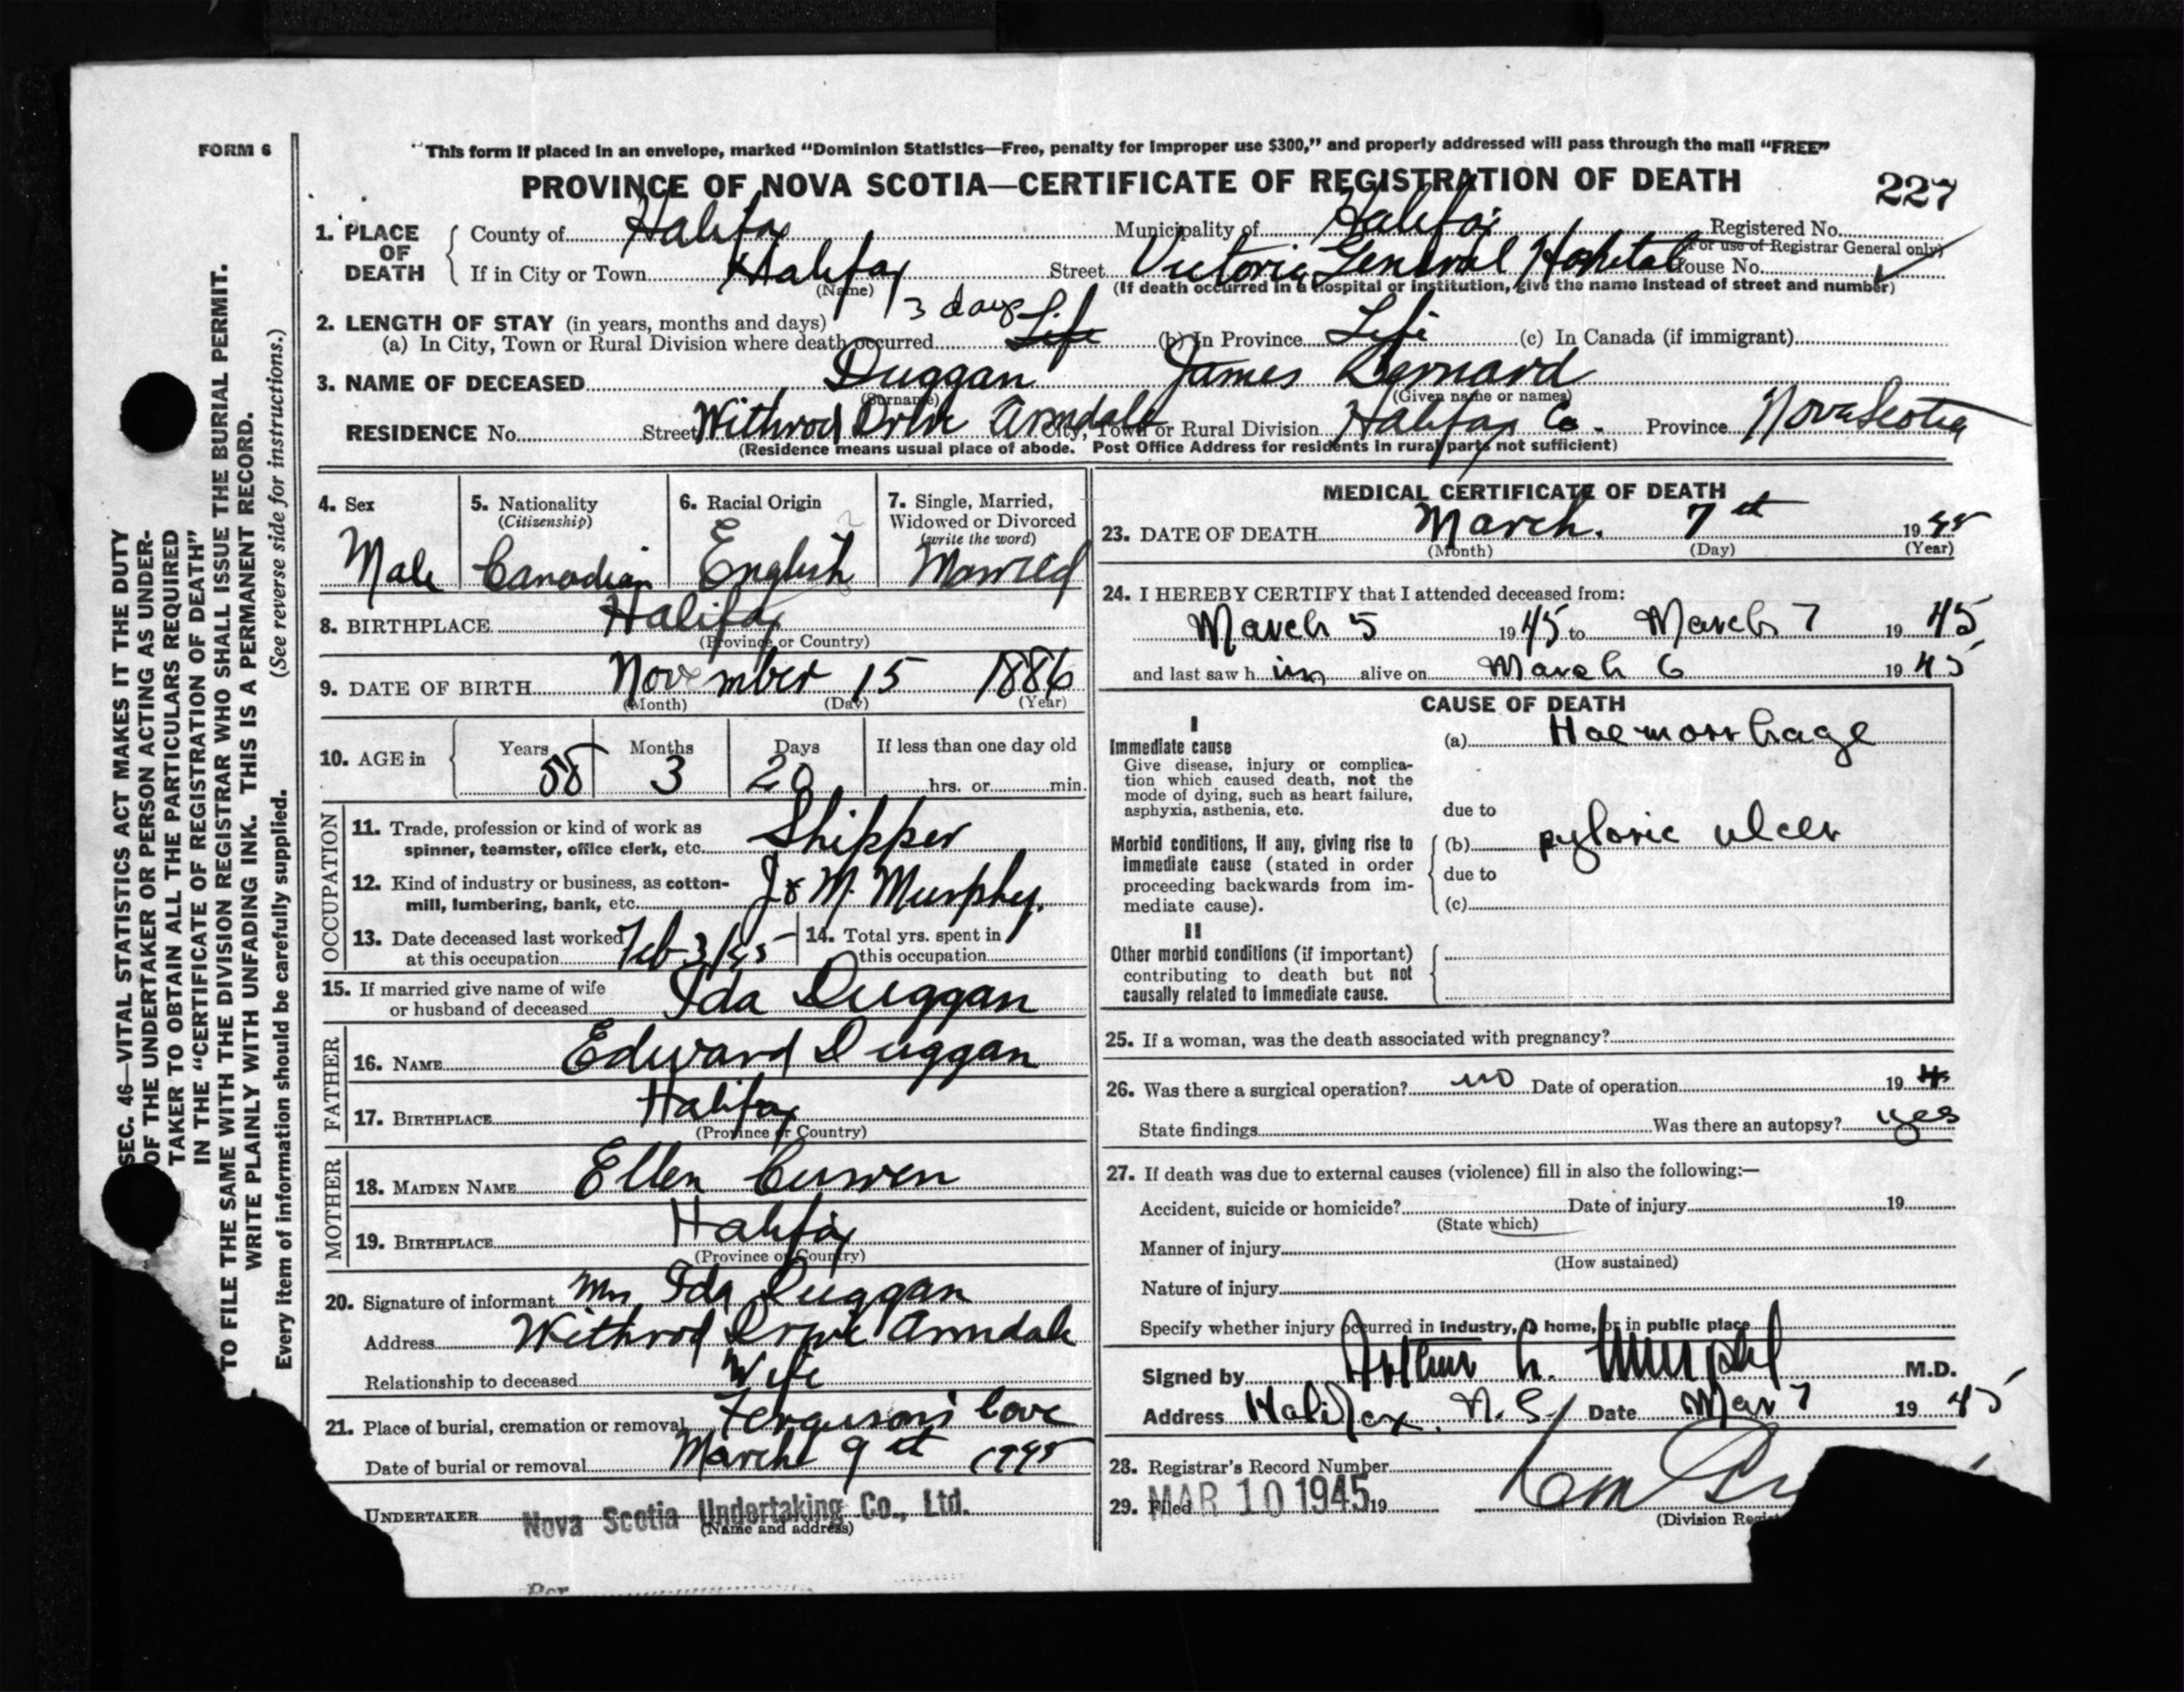 FORM 6
"This form if placed in an envelope, marked "Dominion Statistics—Free, penalty for improper use $300," and properly addressed will pass through the mail "FREE"
PROVINCE OF NOVA SCOTIA—CERTIFICATE OF REGISTRATION OF DEATH
227
1. PLACE OF DEATH
County of Halifax Municipality of Halifax Registered No.
(For use of Registrar General only)
If in City or Town Halifax Street Victoria General Hospital House No.
(Name) (If death occurred in a hospital or institution, give the name instead of street and number)
3 days
2. LENGTH OF STAY (in years, months and days)
(a) In City, Town or Rural Division where death occurred Life (b) In Province Life (c) In Canada (if immigrant)
3. NAME OF DECEASED Duggan James Bernard
(Surname) (Given name or names)
RESIDENCE No. Street Withrod Drive Armdale City, Town or Rural Division Halifax Co. Province Nova Scotia
(Residence means usual place of abode. Post Office Address for residents in rural parts not sufficient)
4. Sex Male
5. Nationality (Citizenship) Canadian
6. Racial Origin English
7. Single, Married, Widowed or Divorced (write the word) Married
8. BIRTHPLACE Halifax
(Province or Country)
9. DATE OF BIRTH November 15 1886
(Month) (Day) (Year)
10. AGE in Years 58 Months 3 Days 20 If less than one day old
hrs. or min.
OCCUPATION
11. Trade, profession or kind of work as
spinner, teamster, office clerk, etc. Shipper
12. Kind of industry or business, as cotton-
mill, lumbering, bank, etc. J & M. Murphy.
13. Date deceased last worked
at this occupation Feb 3/45
14. Total yrs. spent in
this occupation
15. If married give name of wife
or husband of deceased Ida Duggan
FATHER
16. NAME Edward Duggan
17. BIRTHPLACE Halifax
(Province or Country)
MOTHER
18. MAIDEN NAME Ellen Curren
19. BIRTHPLACE Halifax
(Province or Country)
20. Signature of informant Mrs Ida Duggan
Address Withrod Drive Armdale
Relationship to deceased Wife
21. Place of burial, cremation or removal Ferguson's Cove
Date of burial or removal March 9th 1945
UNDERTAKER Nova Scotia Undertaking Co., Ltd.
(Name and address)
Per
MEDICAL CERTIFICATE OF DEATH
23. DATE OF DEATH March. 7th 1945
(Month) (Day) (Year)
24. I HEREBY CERTIFY that I attended deceased from:
March 5 1945 to March 7 1945
and last saw him alive on March 6 1945
CAUSE OF DEATH
I
Immediate cause
Give disease, injury or complica-
tion which caused death, not the
mode of dying, such as heart failure,
asphyxia, asthenia, etc.
(a) Haemorrhage
due to
Morbid conditions, if any, giving rise to
immediate cause (stated in order
proceeding backwards from im-
mediate cause).
(b) pyloric ulcer
due to
(c)
II
Other morbid conditions (if important)
contributing to death but not
causally related to immediate cause.
25. If a woman, was the death associated with pregnancy?
26. Was there a surgical operation? no Date of operation 194
State findings Was there an autopsy? yes
27. If death was due to external causes (violence) fill in also the following:—
Accident, suicide or homicide? Date of injury 19
(State which)
Manner of injury
(How sustained)
Nature of injury
Specify whether injury occurred in industry, in home, or in public place
Signed by Arthur L. Murphy M.D.
Address Halifax. N.S. Date Mar 7 1945
28. Registrar's Record Number
29. Filed MAR 10 1945 19
(Division Regist
SEC. 46—VITAL STATISTICS ACT MAKES IT THE DUTY
OF THE UNDERTAKER OR PERSON ACTING AS UNDER-
TAKER TO OBTAIN ALL THE PARTICULARS REQUIRED
IN THE "CERTIFICATE OF REGISTRATION OF DEATH"
TO FILE THE SAME WITH THE DIVISION REGISTRAR WHO SHALL ISSUE THE BURIAL PERMIT.
WRITE PLAINLY WITH UNFADING INK. THIS IS A PERMANENT RECORD.
Every item of information should be carefully supplied. (See reverse side for instructions.)